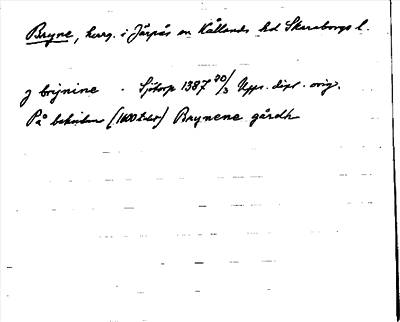 Bryne, herrg. i Järpås sn Kållands hd Skaraborgs l.
j brynine . Sjötorp 1387 20/3 Upps. dipl. orig.
På (1600 t-let) Brynene gårdh